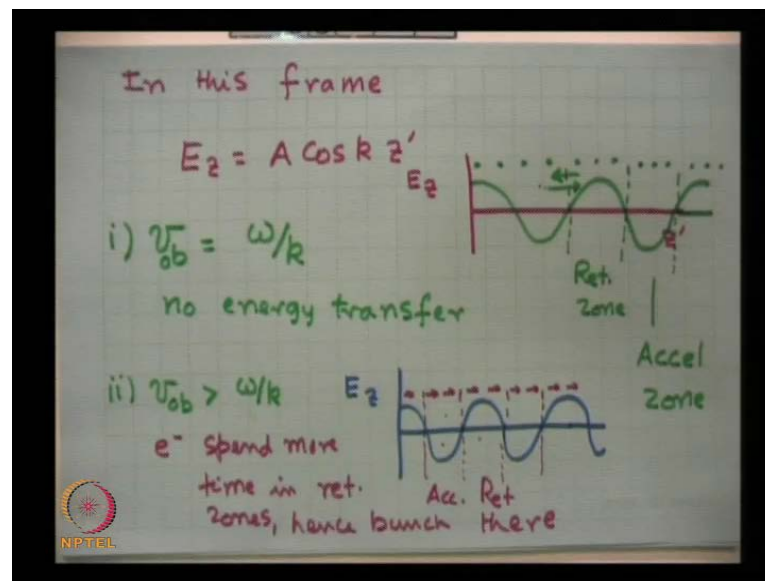 In this frame
E_z = A Cos k z'
E_z
z'
Ret.
Zone
Accel
Zone
i) v_ob = ω/k
no energy transfer
ii) v_ob > ω/k
E_z
e⁻ spend more
time in ret.
zones, hence bunch there
Acc. Ret
NPTEL